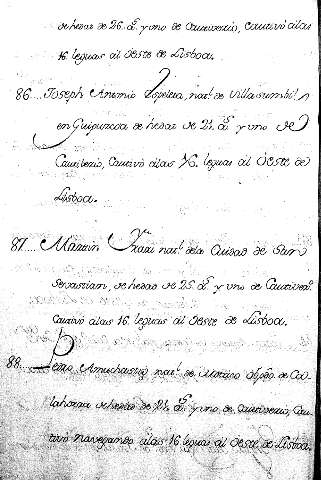 de hedad de 26 as. y uno de Cautiverio, Cautivó alas
16 leguas al Oeste de Lisboa.
86... Joseph Antonio Ezpeleta, natl. de Villa
en Guipuzcoa de hedad de 24 as. y uno de
Cautiverio, Cautivó alas 16. leguas al Oeste de
Lisboa.
87... Martin natl. dela Ciudad de San
Sevastian, de hedad de 25 as. y uno de Cautiverio.
Cautivó alas 16. leguas al Oeste de Lisboa.
88... Pedro natl. de Obpdo. de Ca-
lahorra de hedad de 24 as. y uno de Cautiverio, Cau-
tivó navegando alas 16 leguas al Oeste de Lisboa.